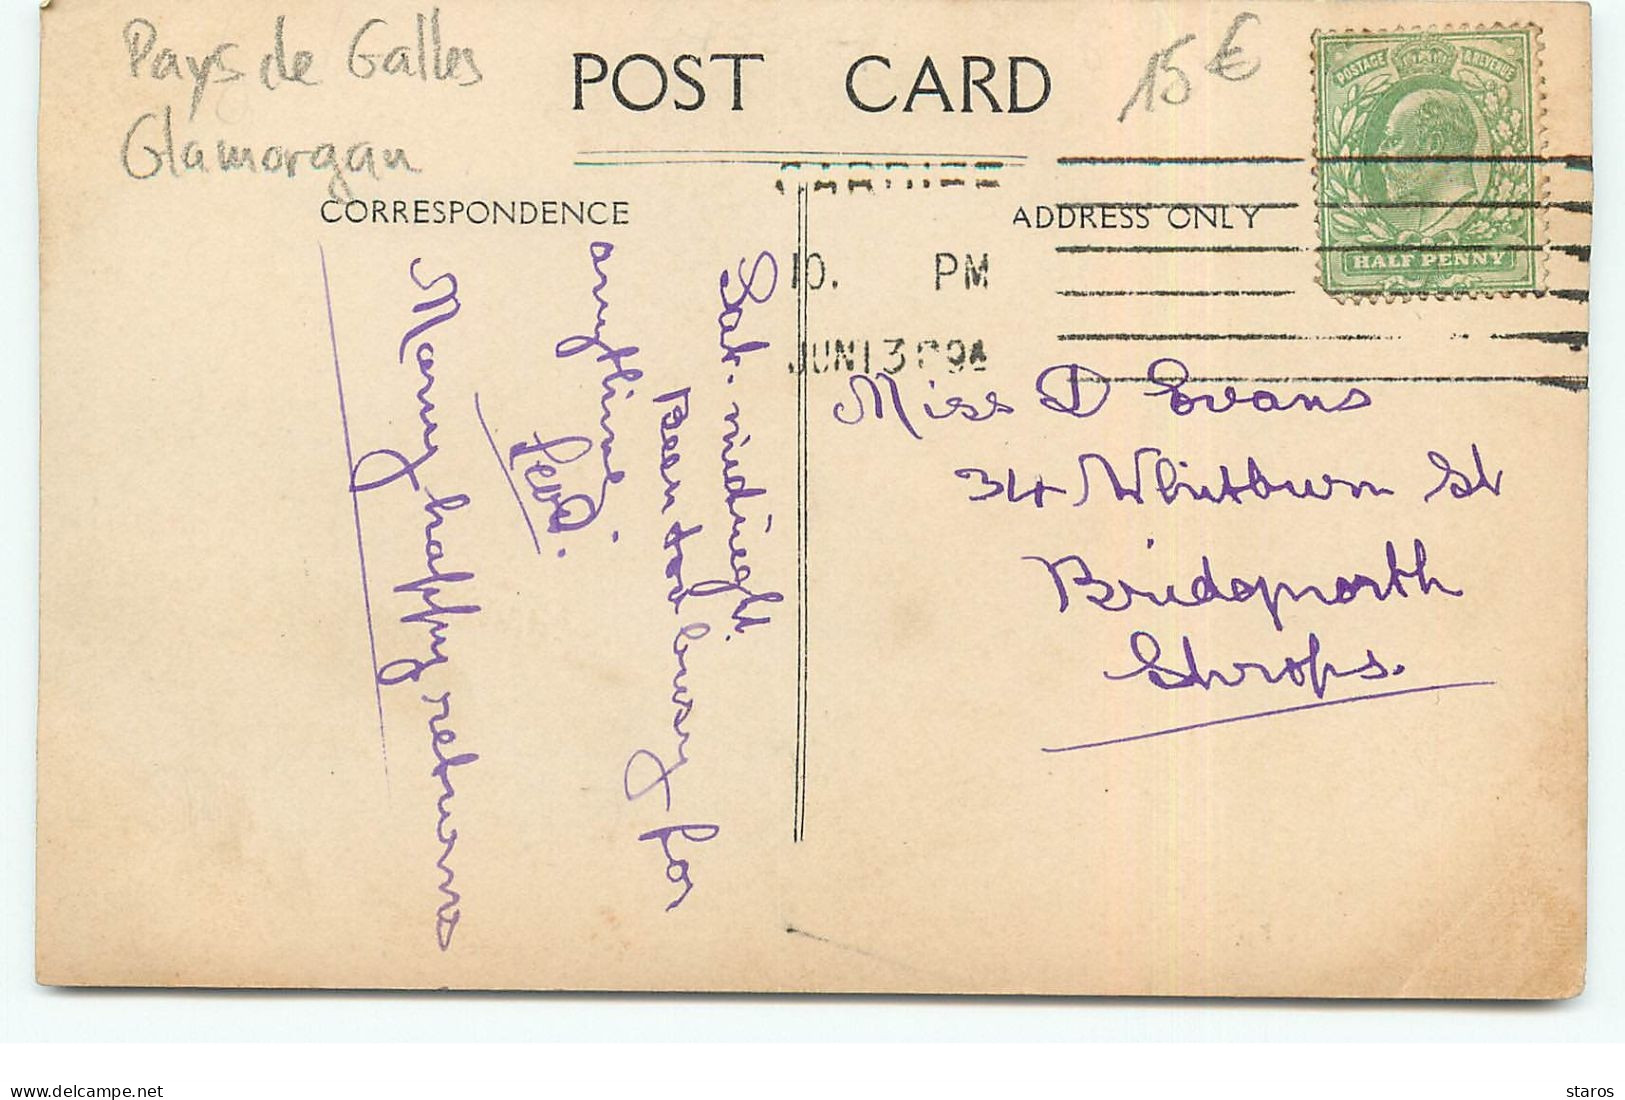 Pays de Galles
Glamorgan
15 €
POST CARD
CORRESPONDENCE
ADDRESS ONLY
POSTAGE & REVENUE
HALF PENNY
10. PM
JUN 13 09
Sat. midnight.
Been too busy for
anything.
Many happy returns
Miss D Evans
34 Whitburn St
Bridgnorth
Shrops.
delcampe.net
staros